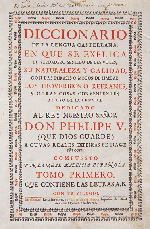 DICCIONARIO
DE LA LENGUA CASTELLANA,
EN QUE SE EXPLICA
EL VERDADERO SENTIDO DE LAS VOCES,
SU NATURALEZA Y CALIDAD,
CON LAS PHRASES O MODOS DE HABLAR,
LOS PROVERBIOS O REFRANES,
Y OTRAS COSAS CONVENIENTES
AL USO DE LA LENGUA.
DEDICADO
AL REY NUESTRO SEÑOR
DON PHELIPE V.
(QUE DIOS GUARDE)
A CUYAS REALES EXPENSAS SE HACE
ESTA OBRA.
COMPUESTO
POR LA REAL ACADEMIA ESPAÑOLA.
TOMO PRIMERO.
QUE CONTIENE LAS LETRAS A.B.